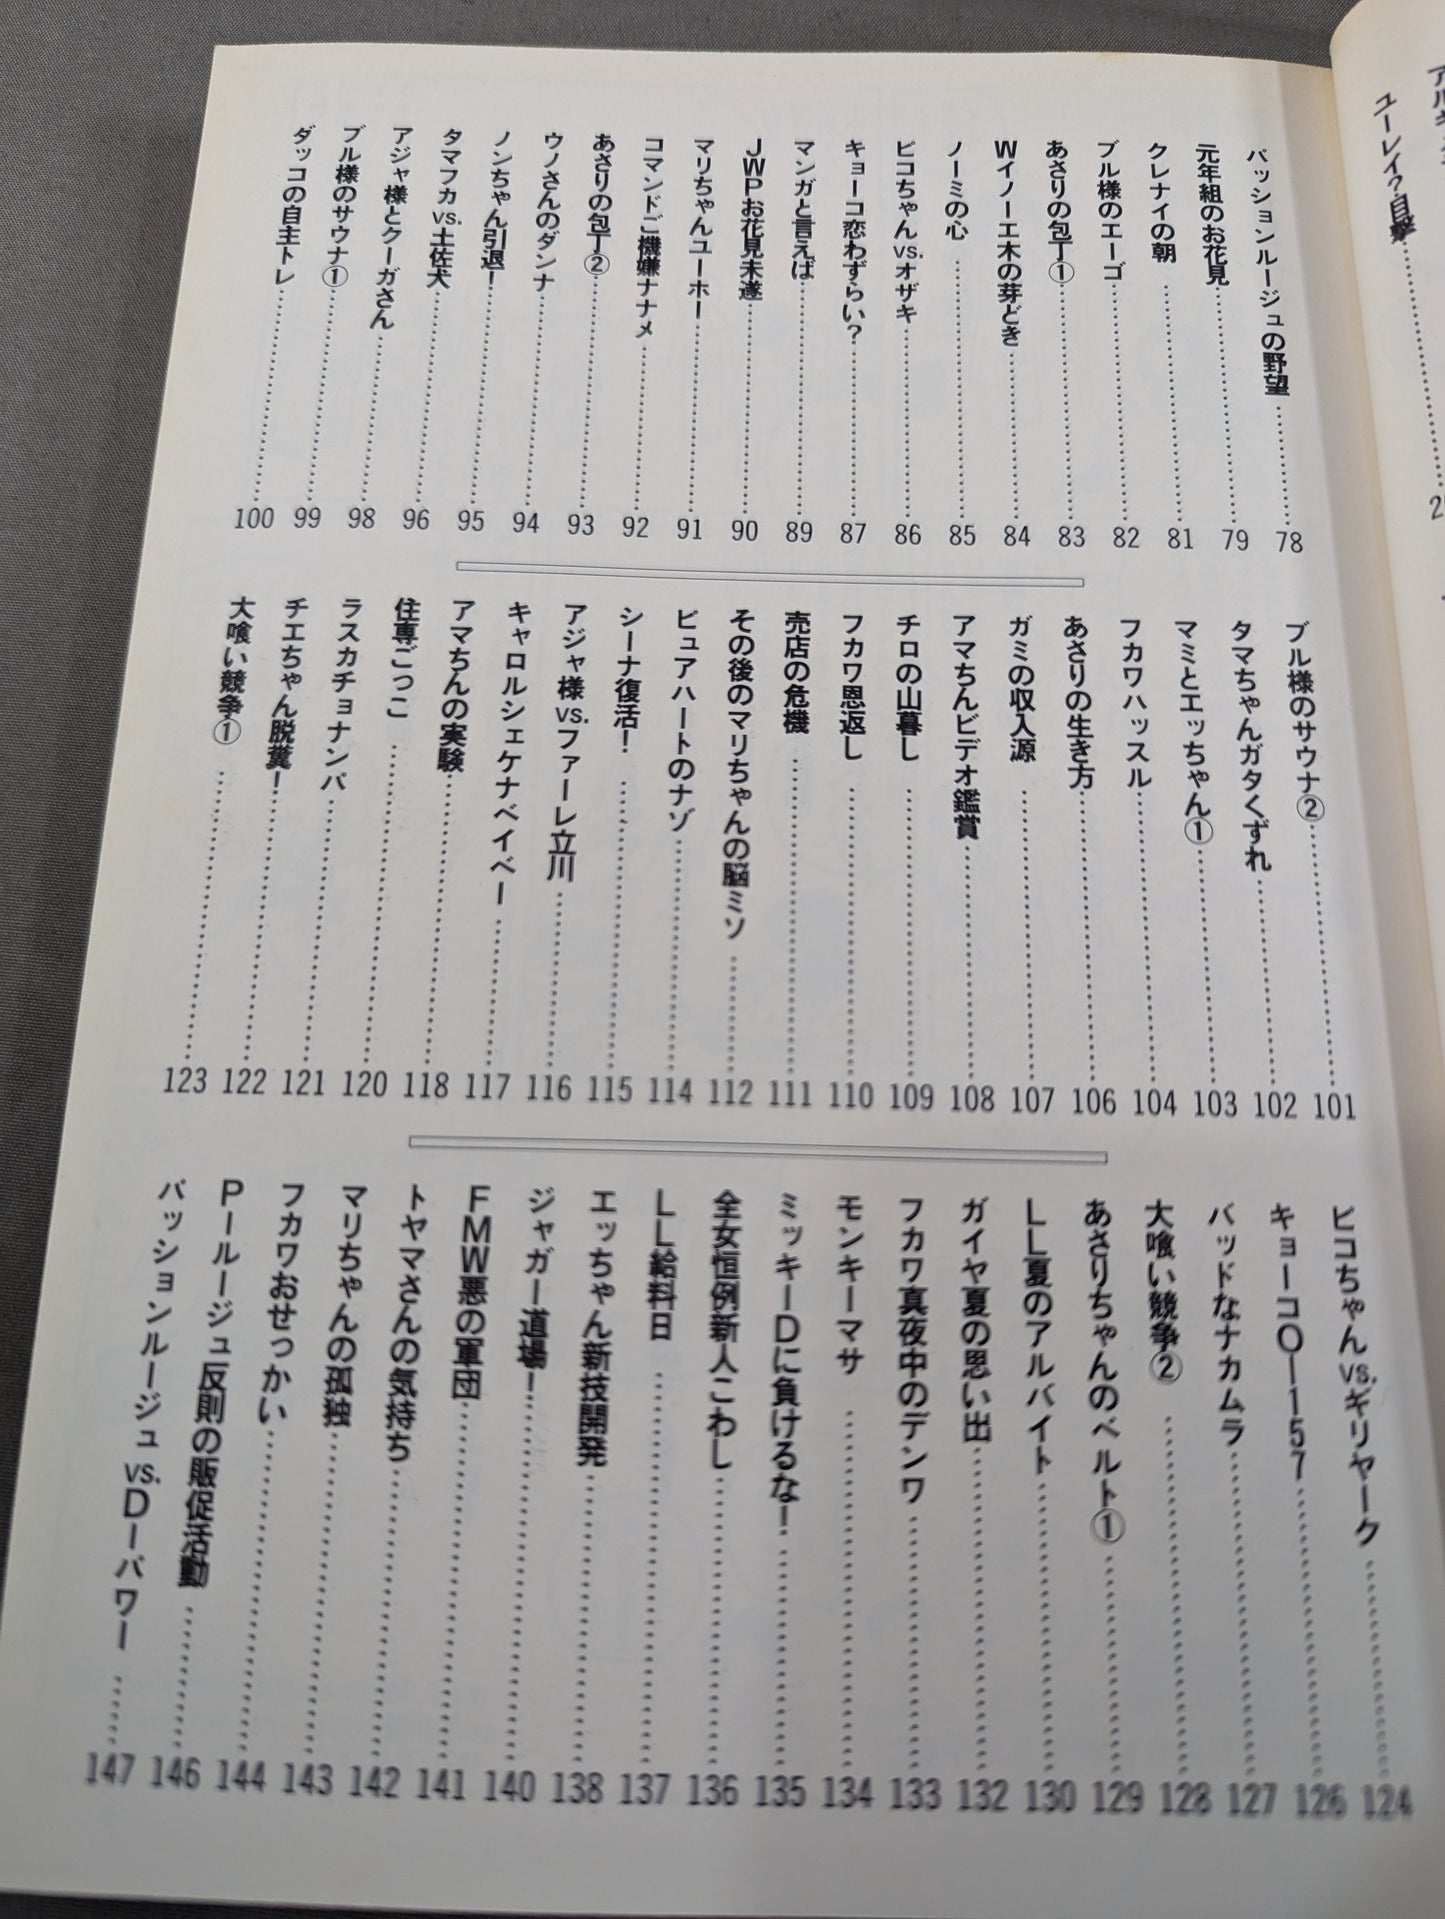 パッションルージュの野望……78
元年組のお花見……79
クレナイの朝……81
ブル様のエーゴ……82
あさりの包丁①……83
Wイノーエ木の芽どき……84
ノーミの心……85
ピコちゃんvs.オザキ……86
キョーコ恋わずらい?……87
マンガと言えば……89
JWPお花見未遂……90
マリちゃんユーホー……91
コマンドご機嫌ナナメ……92
あさりの包丁②……93
ウノさんのダンナ……94
ノンちゃん引退!……95
タマフカvs.土佐犬……96
アジャ様とクーガさん……98
ブル様のサウナ①……99
ダッコの自主トレ……100
ブル様のサウナ②……101
タマちゃんガタくずれ……102
マミとエッちゃん①……103
フカワハッスル……104
あさりの生き方……106
ガミの収入源……107
アマちんビデオ鑑賞……108
チロの山暮し……109
フカワ恩返し……110
売店の危機……111
その後のマリちゃんの脳ミソ……112
ピュアハートのナゾ……114
シーナ復活!……115
アジャ様vs.ファーレ立川……116
キャロルシェケナベイベー……117
アマちんの実験……118
住専ごっこ……120
ラスカチョナンパ……121
チエちゃん脱糞!……122
大喰い競争①……123
ピコちゃんvs.ギリヤーク……124
キョーコO-157……126
バッドなナカムラ……127
大喰い競争②……128
あさりちゃんのベルト①……129
LL夏のアルバイト……130
ガイヤ夏の思い出……132
フカワ真夜中のデンワ……133
モンキーマサ……134
ミッキーDに負けるな!……135
全女恒例新人こわし……136
LL給料日……137
エッちゃん新技開発……138
ジャガー道場!……140
FMW悪の軍団……141
トヤマさんの気持ち……142
マリちゃんの孤独……143
フカワおせっかい……144
Pールージュ反則の販促活動……146
パッションルージュvs.Dーパワー……147
ユーレイ?目撃……